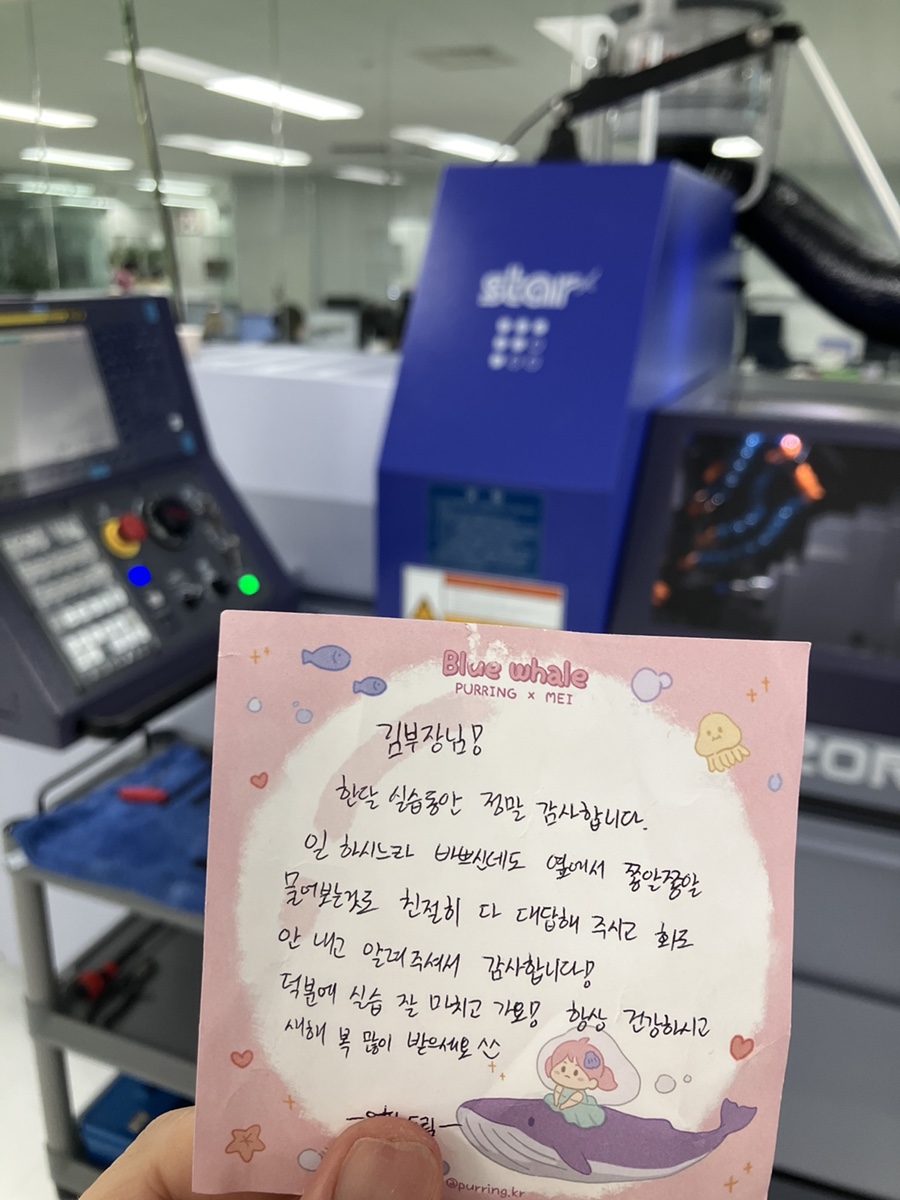 star
Blue whale
PURRING × MEI
김부장님!
한달 실습동안 정말 감사합니다.
일 하시느라 바쁘신데도 옆에서 쫑알쫑알
물어보는것도 친절히 다 대답해 주시고 화도
안 내고 알려주셔서 감사합니다!
덕분에 실습 잘 마치고 가요! 항상 건강하시고
새해 복 많이 받으세요 ^^
드림
@purring.kr